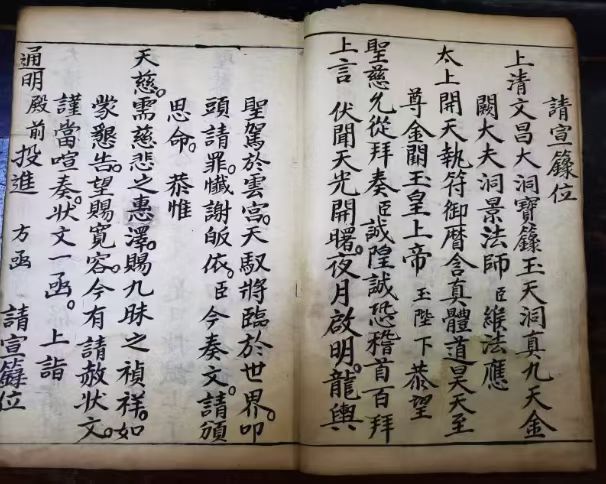 請宣籙位
上清文昌大洞寶籙玉天洞真九天金
闕大夫洞景法師 臣 維法應
太上開天執符御曆含真體道昊天至
尊金闕玉皇上帝 玉陛下 恭望
聖慈允從拜奏臣誠隍誠恐稽首百拜
上言 伏聞天光開曙。夜月啟明。龍輿
聖駕於雲宮。天馭將臨於世界。叩
頭請罪。懺謝皈依。臣今奏文。請頒
恩命。 恭惟
天慈。霈慈悲之惠澤。賜九昧之禎祥。如
蒙懇告。望賜寬容。今有請赦狀文。
謹當喧奏。狀文一函。 上詣
通明殿前 投進 方函 請宣籙位